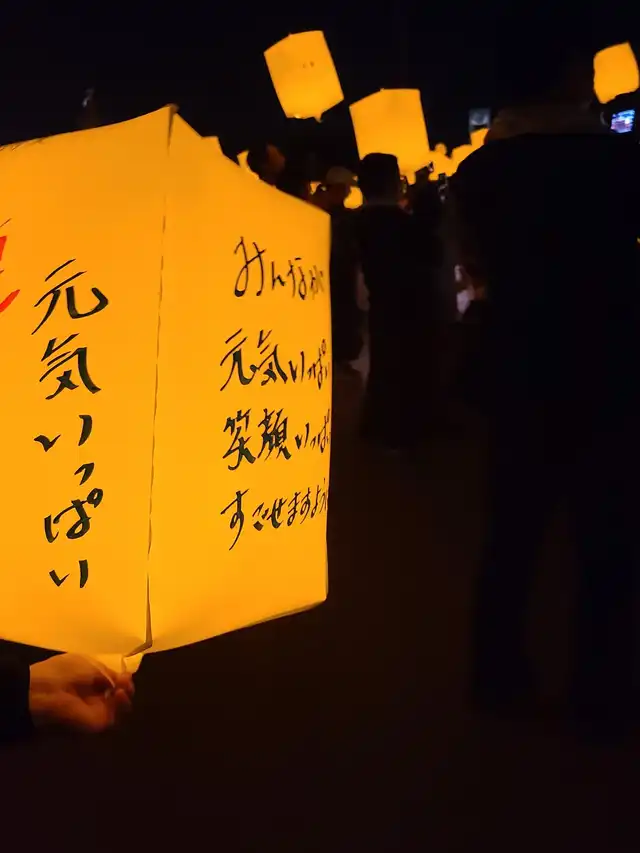 元気いっぱい
みんなが
元気いっぱい
笑顔いっぱい
すごせますように